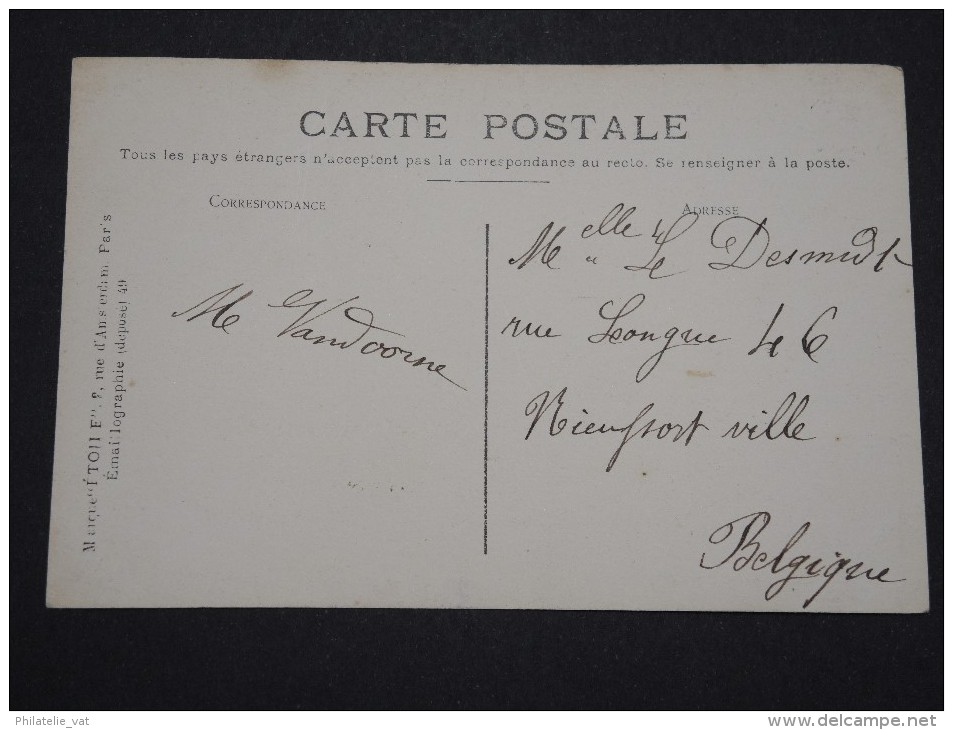 CARTE POSTALE
Tous les pays étrangers n'acceptent pas la correspondance au recto. Se renseigner à la poste.
CORRESPONDANCE
ADRESSE
Melle Desmidt
rue Longue 46
Nieupport ville
Belgique
M Vandoorne
Marque "ÉTOILE". rue d'Amsterdam. Paris
Émaillographie (déposé) 49
Philatelie_vat
www.delcampe.net